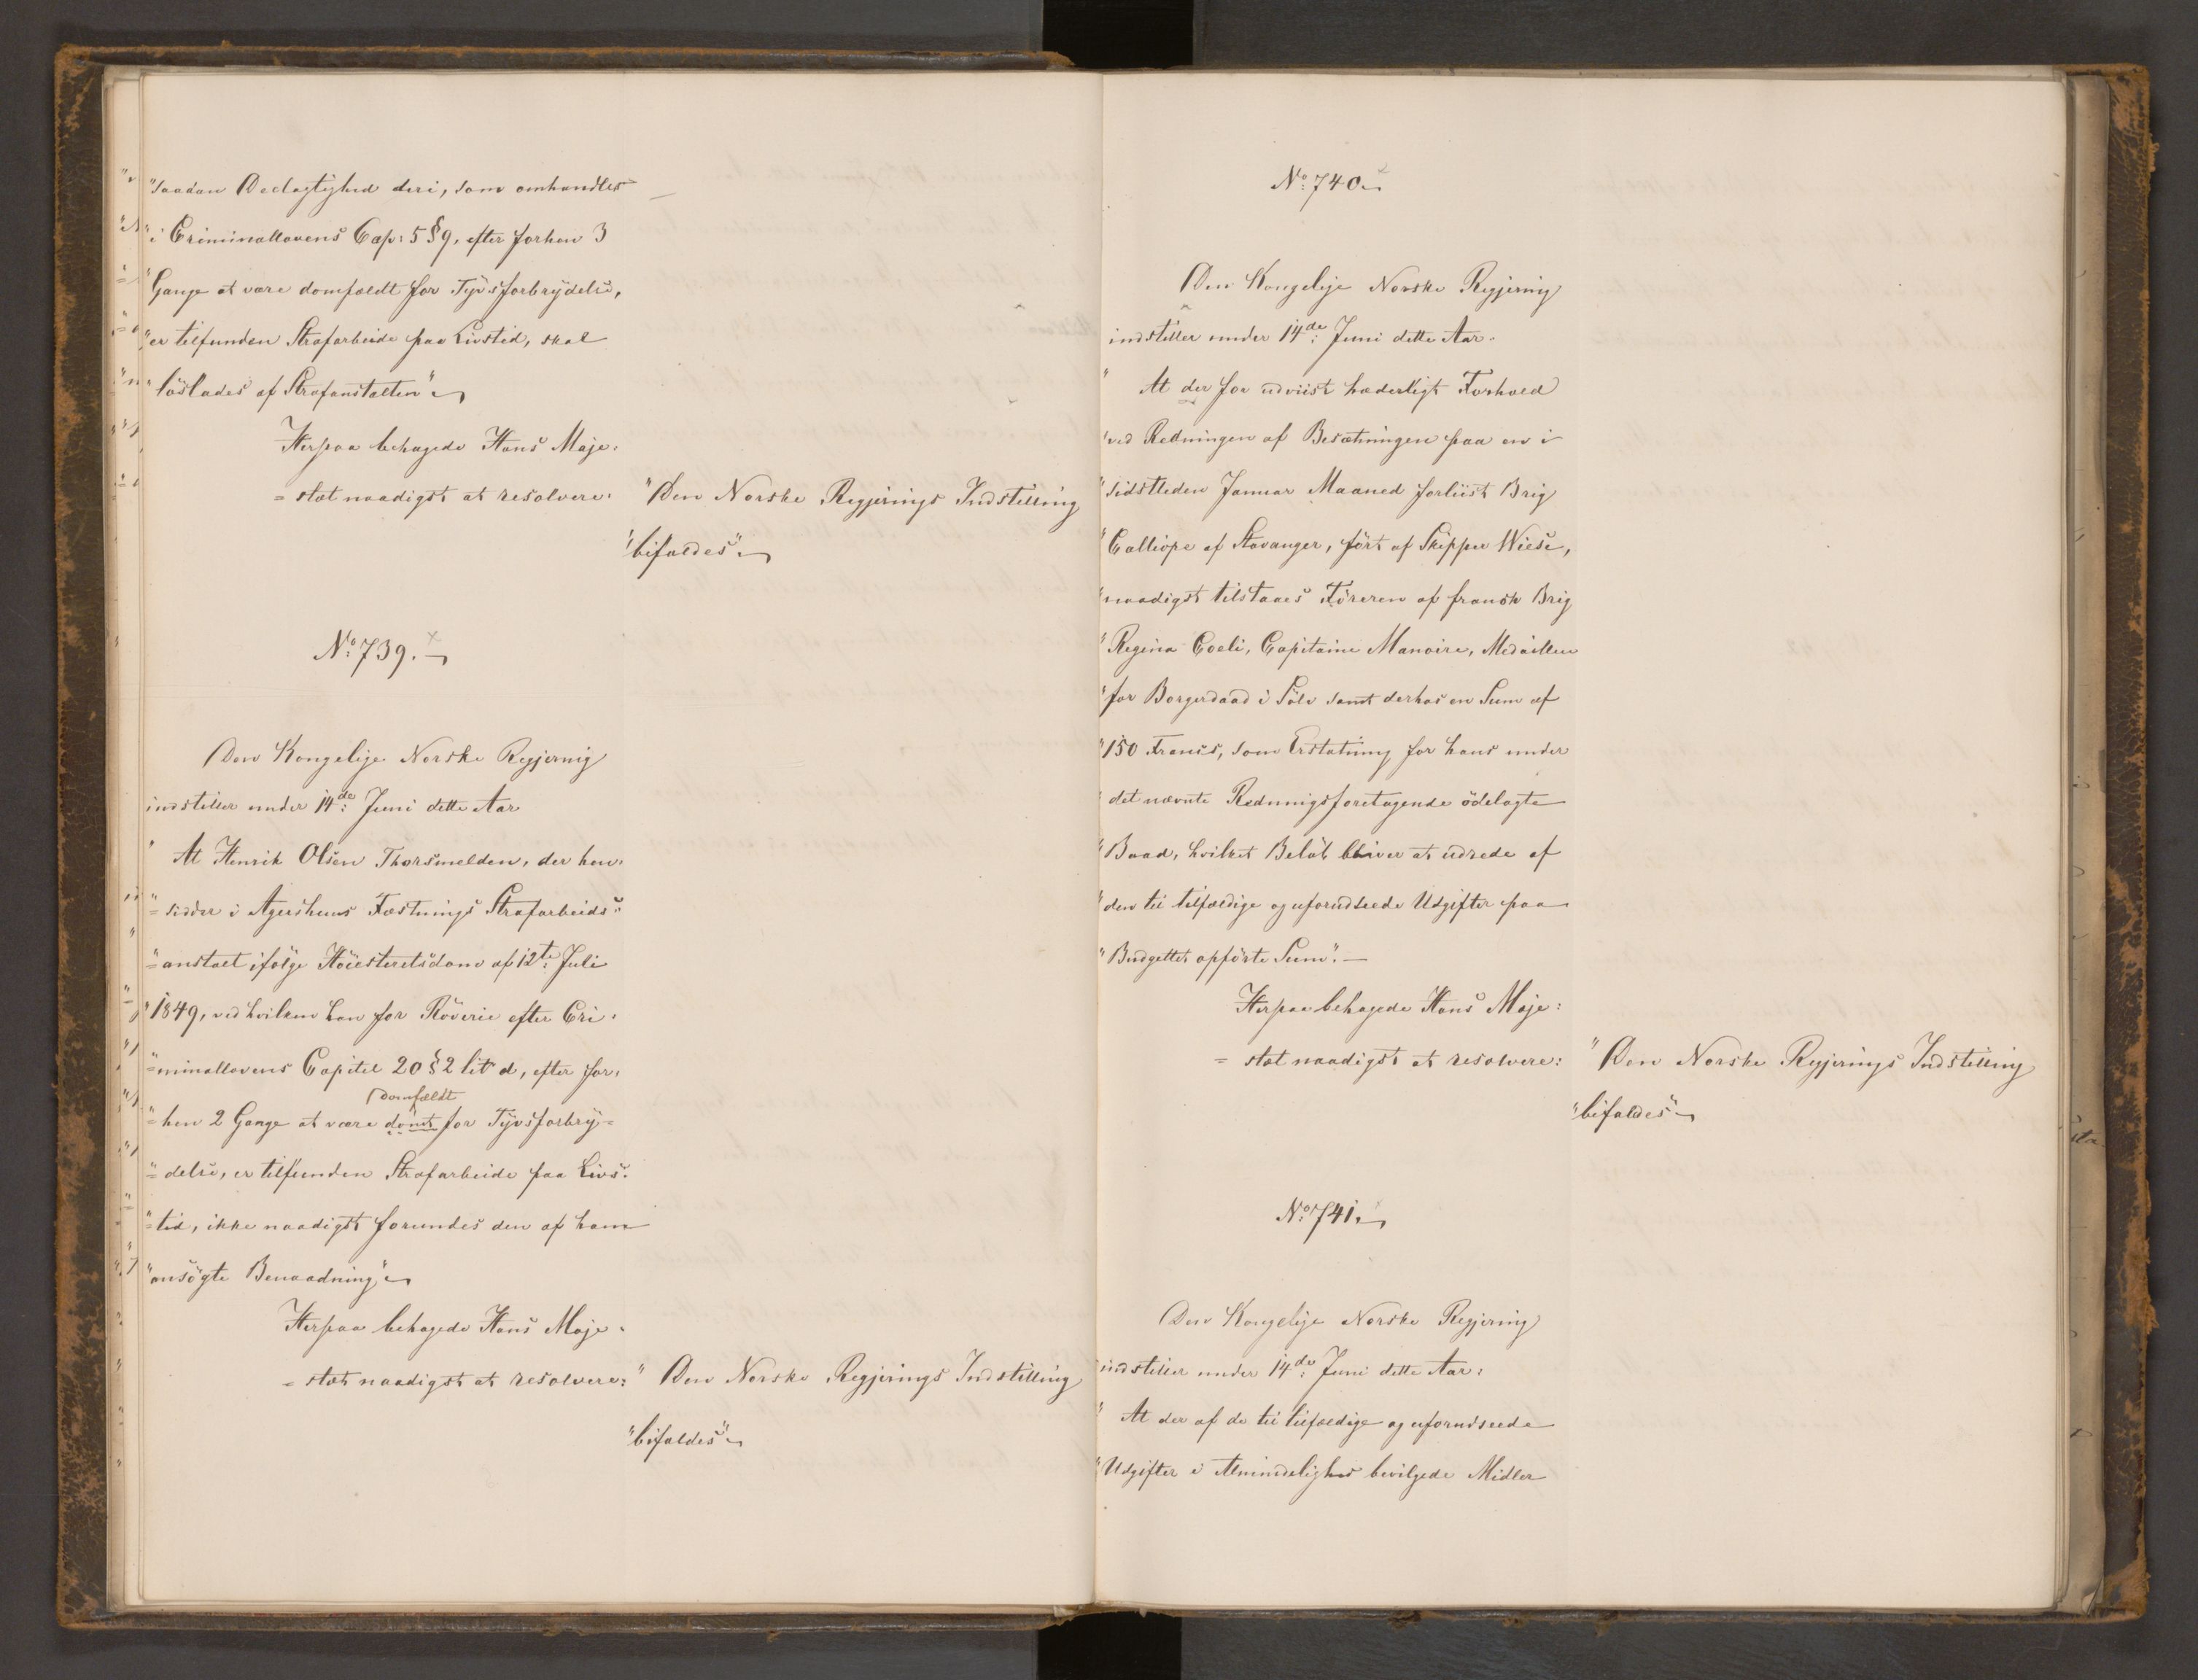 "saadan Deelagtighed deri, som omhandles
"i Criminallovens Cap: 5 § 9, efter forhen 3
"Gange at være domfældt for Tyvsforbrydelse,
"er tilfunden Strafarbeide paa Livstid, skal
"löslades af Strafanstalten".
Herpaa behagede Hans Maje-
=stæt naadigst at resolvere: "Den Norske Regjerings Indstilling
"bifaldes".
No: 739.
Den Kongelige Norske Regjering
indstiller under 14de: Juni dette Aar
" At Henrik Olsen Thorsmelden, der hen-
"=sidder i Agershuus Fæstnings Strafarbeids-
"=anstalt ifölge Höiesteretsdom af 12te: Juli
"1849, ved hvilken han for Röverie efter Cri-
"=minallovens Capitel 20 § 2 litr d, efter for-
domfældt
"=hen 2 Gange at være dömt for Tyvsforbry=
"=delse, er tilfunden Strafarbeide paa Livs-
"=tid, ikke naadigst forundes den af ham
"ansögte Benaadning".
Herpaa behagede Hans Maje-
=stæt naadigst at resolvere: "Den Norske Regjerings Indstilling
"bifaldes".
No: 740.
Den Kongelige Norske Regjering
indstiller under 14de: Juni dette Aar.
" At der for udviist hæderligt Forhold
"ved Redningen af Besætningen paa en i
"sidstleden Januar Maaned forliist Brig
"Calliope af Stavanger, fört af Skipper Wiese,
"naadigst tilstaaes Föreren af fransk Brig
"Regina Coeli, Capitaine Manoire, Medaillen
"for Borgerdaad i Sölv samt derhos en Sum af
"150 Francs, som Erstatning for hans under
"det nævnte Redningsforetagende ödelagte
"Baad, hvilket Belöb bliver at udrede af
"den til tilfældige og uforudseede Udgifter paa
"Budgettet opförte Sum".
Herpaa behagede Hans Maje:
=stæt naadigst at resolvere: "Den Norske Regjerings Indstilling
"bifaldes".
No: 741.
Den Kongelige Norske Regjering
indstiller under 14de: Juni dette Aar:
" At der af de til tilfældige og uforudseede
"Udgifter i Almindelighed bevilgede Midler